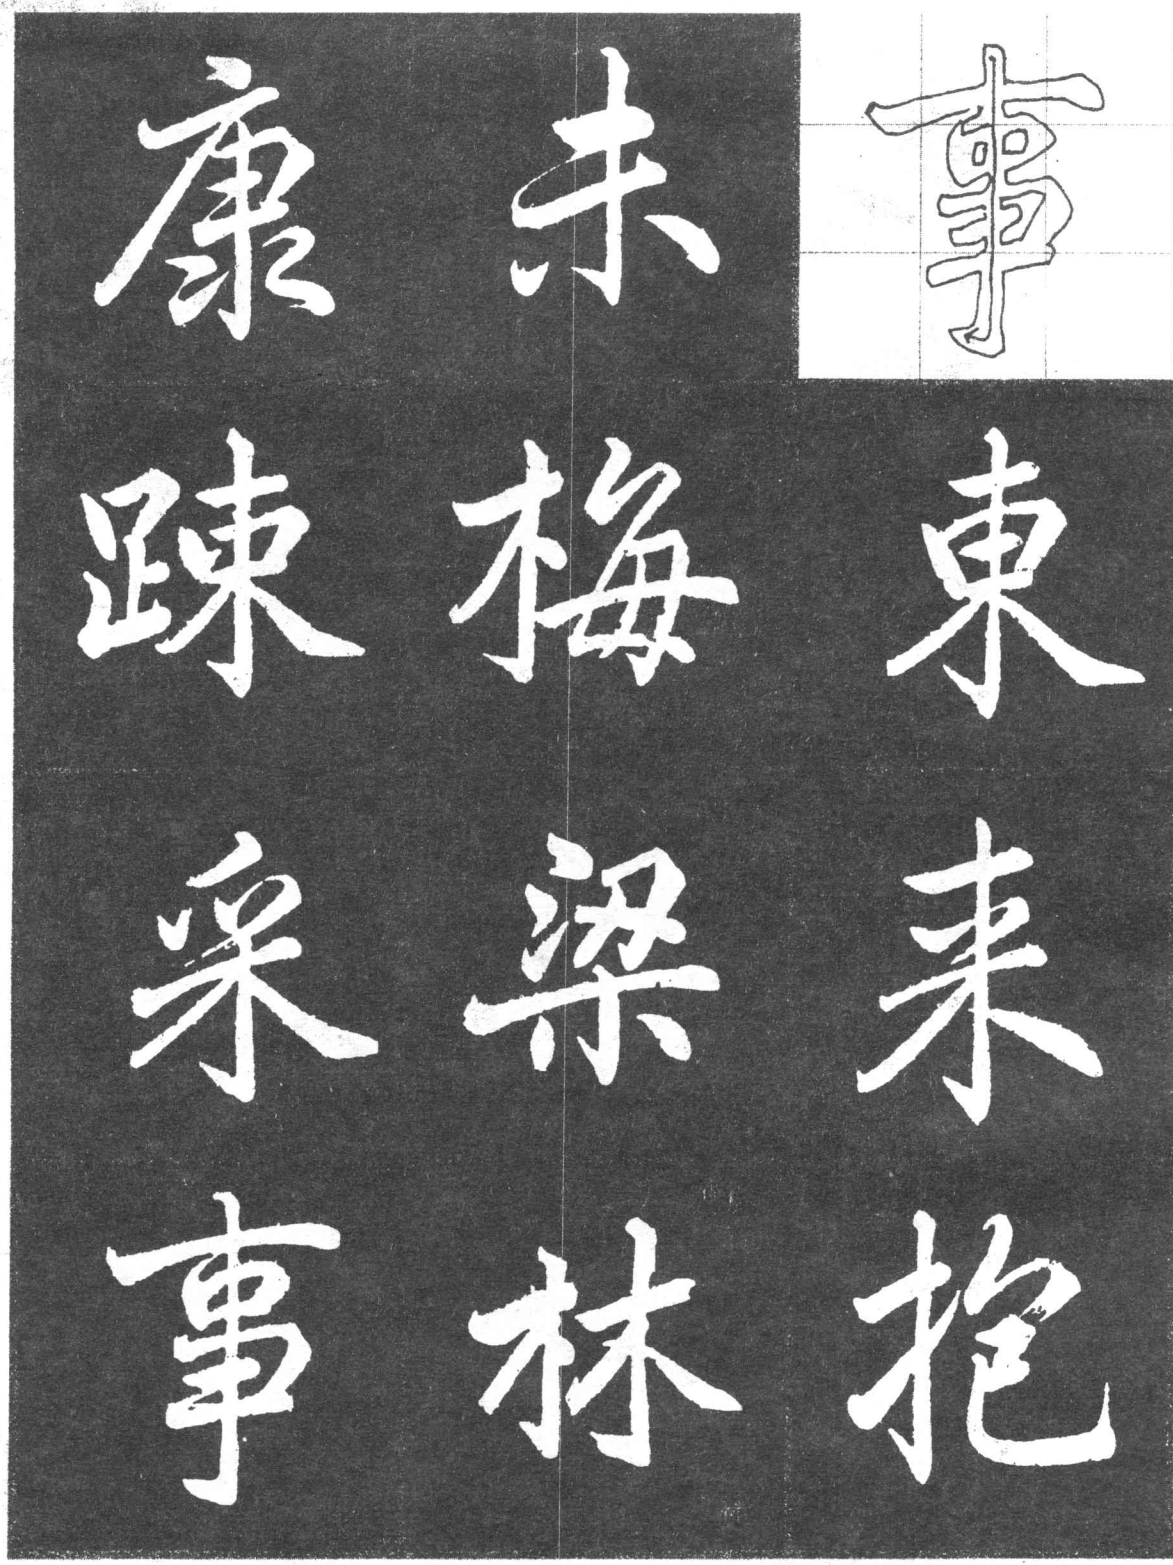 事東来抱
未梅梁林
康踈采事